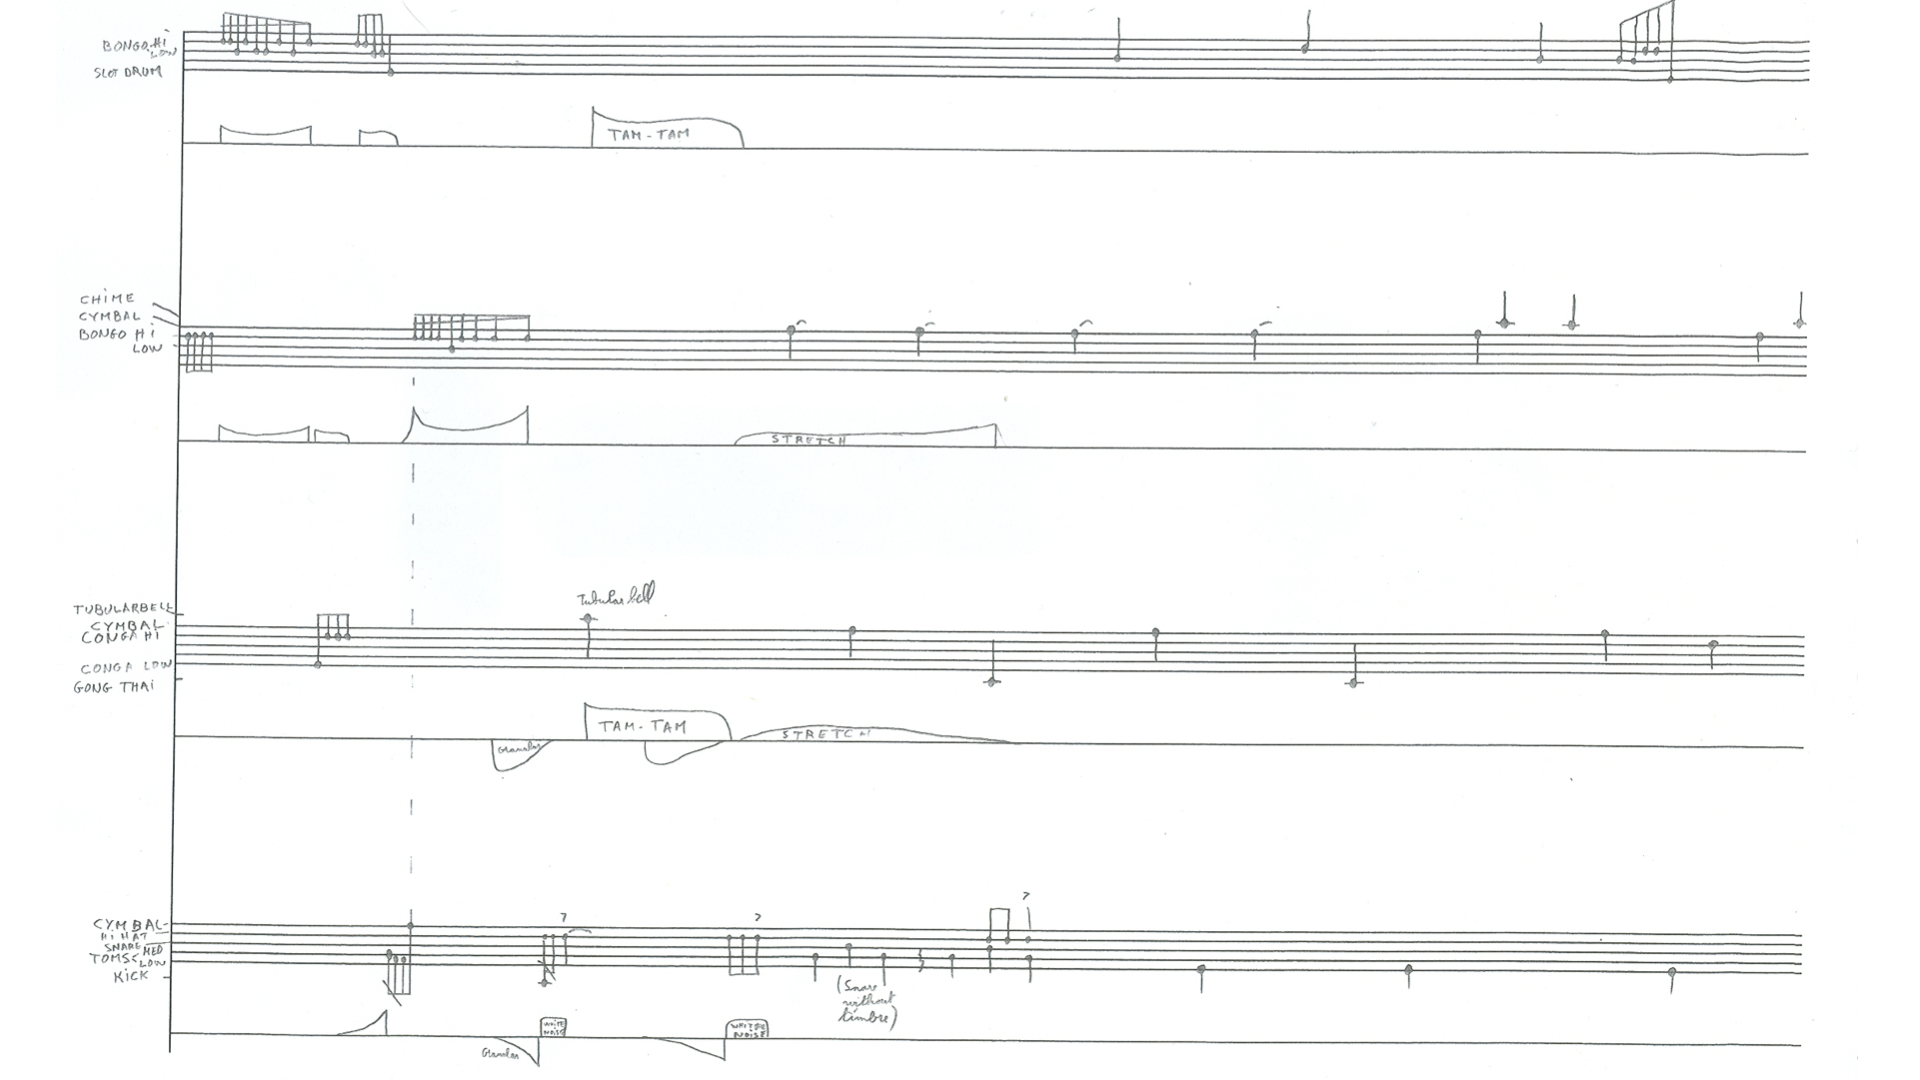 BONGO Hi
LOW
SLOT DRUM
TAM-TAM
CHiME
CYMBAL
BONGO Hi
LOW
STRETCH
Tubular bell
TUBULARBELL
CYMBAL
CONGA Hi
CONGA LOW
GONG THAi
TAM-TAM
STRETCH
Granular
CYMBAL
Hi HAT
SNARE
TOMS MED
LOW
KiCK
(Snare
without
timbre)
WHITE
NOISE
WHITE
NOiSE
Granular